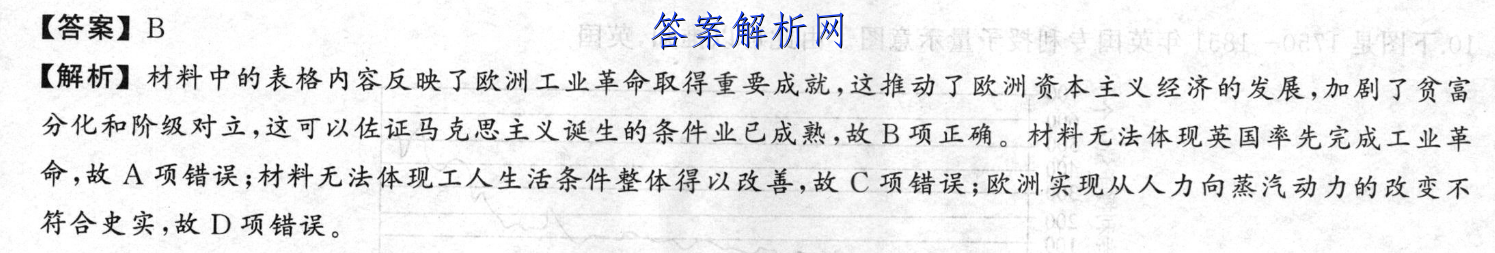 答案解析网
【答案】B
【解析】材料中的表格内容反映了欧洲工业革命取得重要成就,这推动了欧洲资本主义经济的发展,加剧了贫富
分化和阶级对立,这可以佐证马克思主义诞生的条件业已成熟,故 B 项正确。材料无法体现英国率先完成工业革
命,故 A 项错误;材料无法体现工人生活条件整体得以改善,故 C 项错误;欧洲实现从人力向蒸汽动力的改变不
符合史实,故 D 项错误。